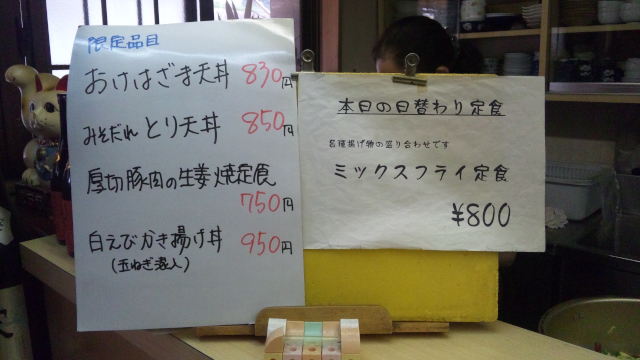 限定品目
おけはざま天丼 830円
みそだれとり天丼 850円
厚切豚肉の生姜焼定食
750円
白えびかき揚げ丼 950円
(玉ねぎ混入)
本日の日替わり定食
各種揚げ物の盛り合わせです
ミックスフライ定食
¥800